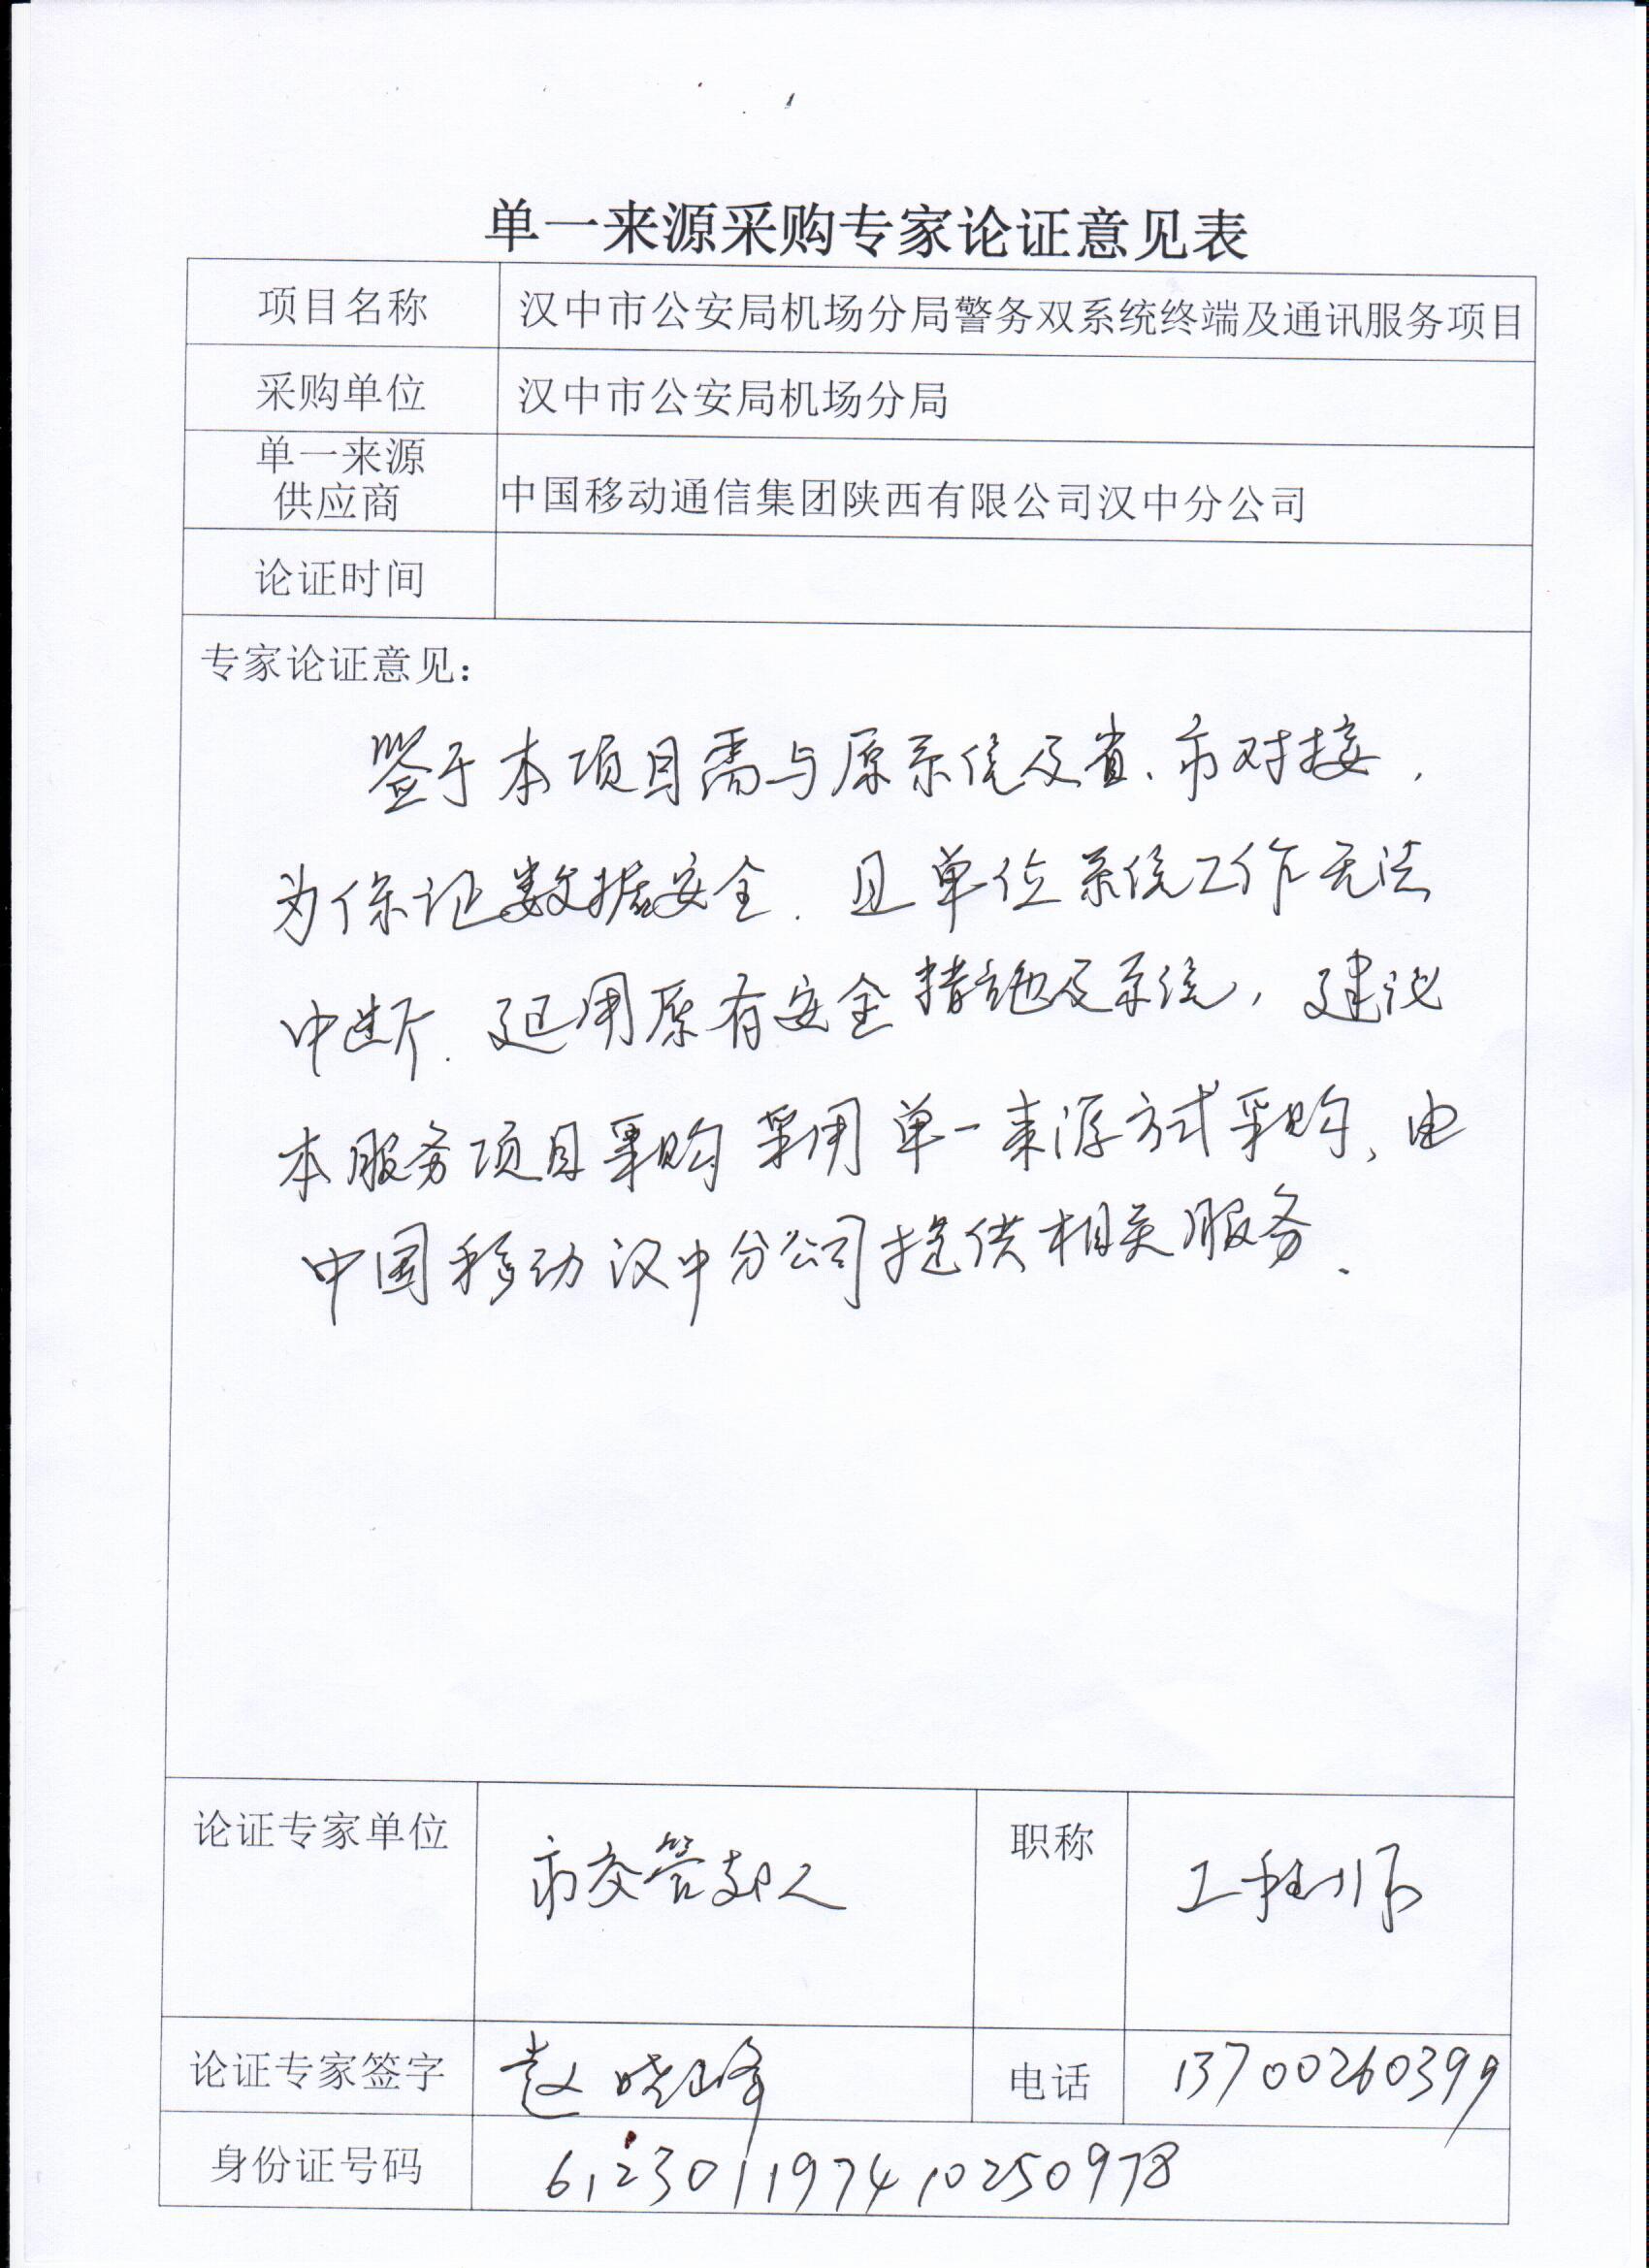 单一来源采购专家论证意见表
项目名称 汉中市公安局机场分局警务双系统终端及通讯服务项目
采购单位 汉中市公安局机场分局
单一来源
供应商 中国移动通信集团陕西有限公司汉中分公司
论证时间
专家论证意见：
鉴于本项目需与原系统及省、市对接，
为保证数据安全，且单位系统工作无法
中断，延用原有安全措施及系统，建议
本服务项目采购采用单一来源方式采购，由
中国移动汉中分公司提供相关服务。
论证专家单位 市交管支队 职称 工程师
论证专家签字 赵晓峰 电话 13700260399
身份证号码 612301197410250978